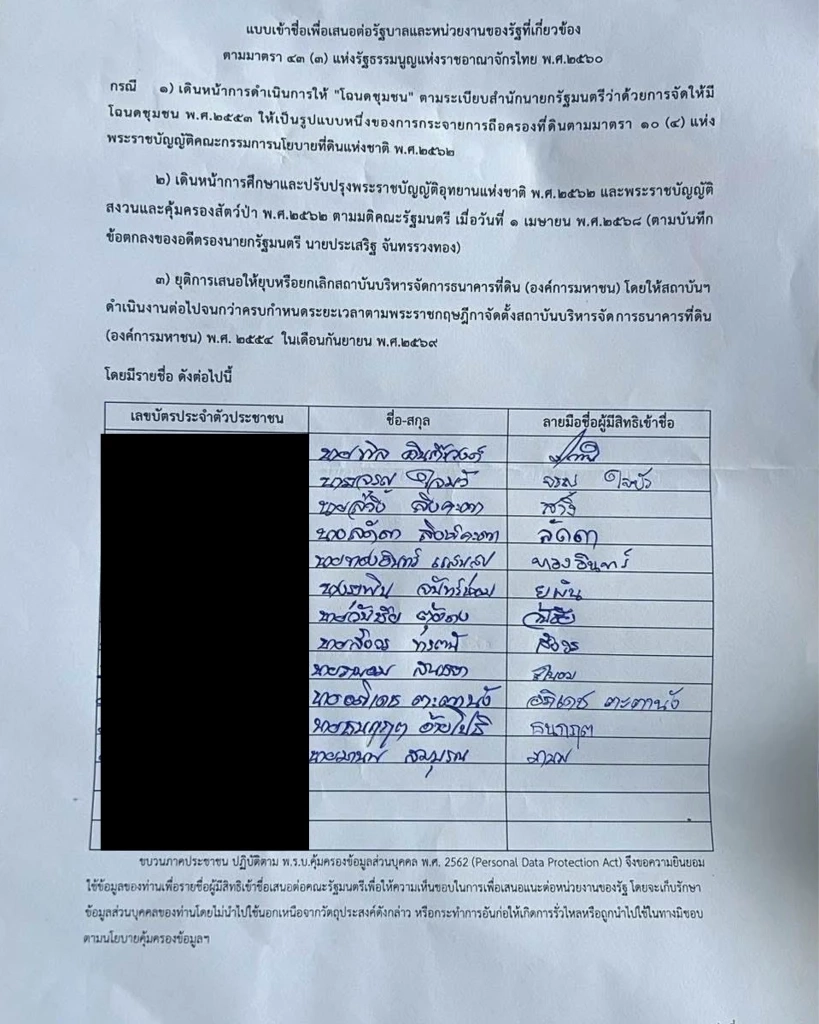 แบบเข้าชื่อเพื่อเสนอต่อรัฐบาลและหน่วยงานของรัฐที่เกี่ยวข้อง
ตามมาตรา ๔๓ (๓) แห่งรัฐธรรมนูญแห่งราชอาณาจักรไทย พ.ศ.๒๕๖๐
กรณี ๑) เดินหน้าการดำเนินการให้ "โฉนดชุมชน" ตามระเบียบสำนักนายกรัฐมนตรีว่าด้วยการจัดให้มี
โฉนดชุมชน พ.ศ.๒๕๕๓ ให้เป็นรูปแบบหนึ่งของการกระจายการถือครองที่ดินตามมาตรา ๑๐ (๔) แห่ง
พระราชบัญญัติคณะกรรมการนโยบายที่ดินแห่งชาติ พ.ศ.๒๕๖๒
๒) เดินหน้าการศึกษาและปรับปรุงพระราชบัญญัติอุทยานแห่งชาติ พ.ศ.๒๕๖๒ และพระราชบัญญัติ
สงวนและคุ้มครองสัตว์ป่า พ.ศ.๒๕๖๒ ตามมติคณะรัฐมนตรี เมื่อวันที่ ๑ เมษายน พ.ศ.๒๕๖๘ (ตามบันทึก
ข้อตกลงของอดีตรองนายกรัฐมนตรี นายประเสริฐ จันทรรวงทอง)
๓) ยุติการเสนอให้ยุบหรือยกเลิกสถาบันบริหารจัดการธนาคารที่ดิน (องค์การมหาชน) โดยให้สถาบันฯ
ดำเนินงานต่อไปจนกว่าครบกำหนดระยะเวลาตามพระราชกฤษฎีกาจัดตั้งสถาบันบริหารจัดการธนาคารที่ดิน
(องค์การมหาชน) พ.ศ. ๒๕๕๔ ในเดือนกันยายน พ.ศ.๒๕๖๙
โดยมีรายชื่อ ดังต่อไปนี้
เลขบัตรประจำตัวประชาชน ชื่อ-สกุล ลายมือชื่อผู้มีสิทธิเข้าชื่อ
นาย
จรญ ใจบัว
นาย
ลัดดา
นายทองอินทร์ แสนสา ทองอินทร์
จันทร์หอม ยุพิน
นายวันชัย
นาย
นายถนอม ถนอม
นายอภิเดช ตะตานัง อภิเดช ตะตานัง
นายธนกฤต ธนกฤต
นายมานพ สมบูรณ์ มานพ
ขบวนภาคประชาชน ปฏิบัติตาม พ.ร.บ.คุ้มครองข้อมูลส่วนบุคคล พ.ศ. 2562 (Personal Data Protection Act) จึงขอความยินยอม
ใช้ข้อมูลของท่านเพื่อรายชื่อผู้มีสิทธิเข้าชื่อเสนอต่อคณะรัฐมนตรีเพื่อให้ความเห็นชอบในการเพื่อเสนอแนะต่อหน่วยงานของรัฐ โดยจะเก็บรักษา
ข้อมูลส่วนบุคคลของท่านโดยไม่นำไปใช้นอกเหนือจากวัตถุประสงค์ดังกล่าว หรือกระทำการอันก่อให้เกิดการรั่วไหลหรือถูกนำไปใช้ในทางมิชอบ
ตามนโยบายคุ้มครองข้อมูลฯ